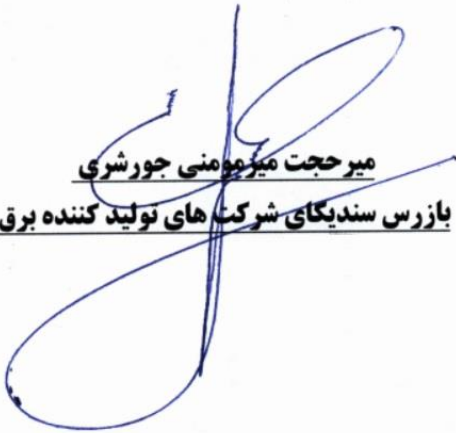 میرحجت میرمومنی جورشری
بازرس سندیکای شرکت های تولید کننده برق